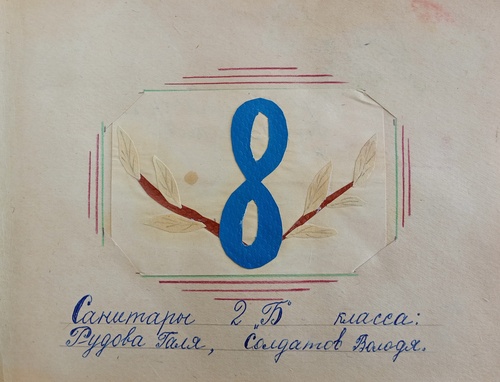 8
Санитары 2 „Б" класса:
Рудова Галя, Солдатов Володя.